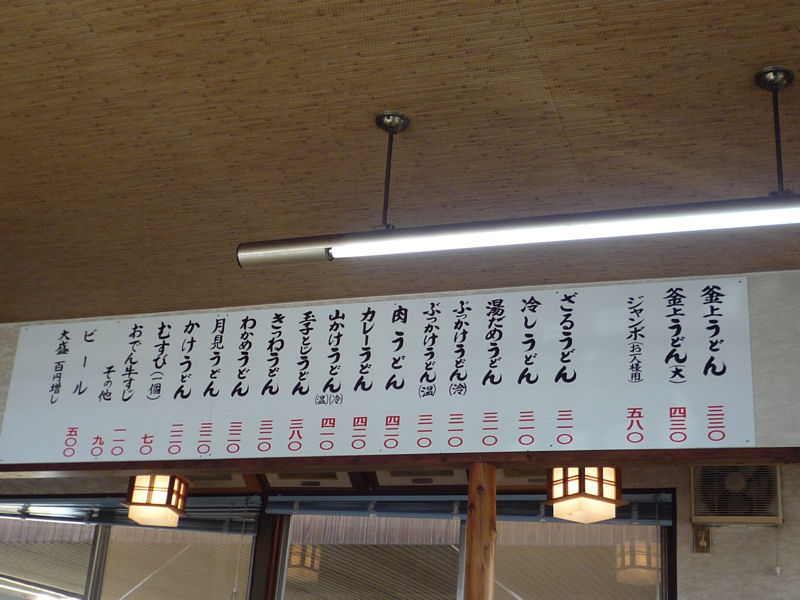 釜上うどん 三三〇
釜上うどん(大) 四三〇
ジャンボ(お一人様用) 五八〇
ざるうどん 三一〇
冷しうどん 三一〇
湯だめうどん 三一〇
ぶっかけうどん(冷) 三一〇
ぶっかけうどん(温) 三一〇
肉うどん 四二〇
カレーうどん 四二〇
山かけうどん(冷)(温) 四二〇
玉子とじうどん 三八〇
きつねうどん 三二〇
わかめうどん 三二〇
月見うどん 三二〇
かけうどん 二二〇
むすび(一個) 七〇
おでん牛すじ 一一〇
その他 九〇
ビール 五〇〇
大盛 百円増し